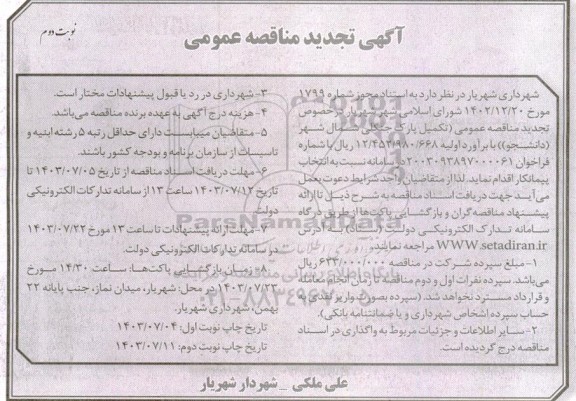 آگهی تجدید مناقصه عمومی
نوبت دوم
شهرداری شهریار در نظر دارد به استناد مجوز شماره ۱۷۹۹
مورخ ۱۴۰۲/۱۲/۲۰ شورای اسلامی شهر شهریار در خصوص
تجدید مناقصه عمومی (تکمیل پارک جنگلی شمال شهر
(دانشجو)) با برآورد اولیه ۱۲/۴۵۳/۹۸۰/۶۶۸ ریال با شماره
فراخوان ۲۰۰۳۰۹۳۸۹۷۰۰۰۰۶۱ سامانه نسبت به انتخاب
پیمانکار اقدام نماید. لذا از متقاضیان واجد شرایط دعوت بعمل
می‌آید جهت دریافت اسناد مناقصه به شرح ذیل تا ارائه
پیشنهاد مناقصه گران و بازگشایی پاکت‌ها از طریق درگاه
سامانه تدارک الکترونیکی دولت (ستاد) به آدرس
WWW.setadiran.ir مراجعه نمایند.
۱- مبلغ سپرده شرکت در مناقصه ۶۳۳/۰۰۰/۰۰۰ ریال
می‌باشد. سپرده نفرات اول و دوم مناقصه تا زمان انجام معامله
و قرارداد مسترد نخواهد شد. (سپرده بصورت واریز نقدی به
حساب سپرده اشخاص شهرداری و یا ضمانتنامه بانکی).
۲- سایر اطلاعات و جزئیات مربوط به واگذاری در اسناد
مناقصه درج گردیده است.
۳- شهرداری در رد یا قبول پیشنهادات مختار است.
۴- هزینه درج آگهی به عهده برنده مناقصه می‌باشد.
۵- متقاضیان میبایست دارای حداقل رتبه ۵ رشته ابنیه و
تاسیسات از سازمان برنامه و بودجه کشور باشند.
۶- مهلت دریافت اسناد مناقصه از تاریخ ۱۴۰۳/۰۷/۰۵ تا
تاریخ ۱۴۰۳/۰۷/۱۲ ساعت ۱۳ از سامانه تدارکات الکترونیکی
دولت.
۷- مهلت ارائه پیشنهادات تا ساعت ۱۳ مورخ ۱۴۰۳/۰۷/۲۲
در سامانه تدارکات الکترونیکی دولت.
۸- زمان بازگشایی پاکت‌ها: ساعت ۱۴/۳۰ مورخ
۱۴۰۳/۰۷/۲۳ در محل: شهریار، میدان نماز، جنب پایانه ۲۲
بهمن، شهرداری شهریار.
تاریخ چاپ نوبت اول: ۱۴۰۳/۰۷/۰۴
تاریخ چاپ نوبت دوم: ۱۴۰۳/۰۷/۱۱
علی ملکی _ شهردار شهریار
ParsNamadData
۰۲۱-۸۸۳۴۹۶۷۰-۵